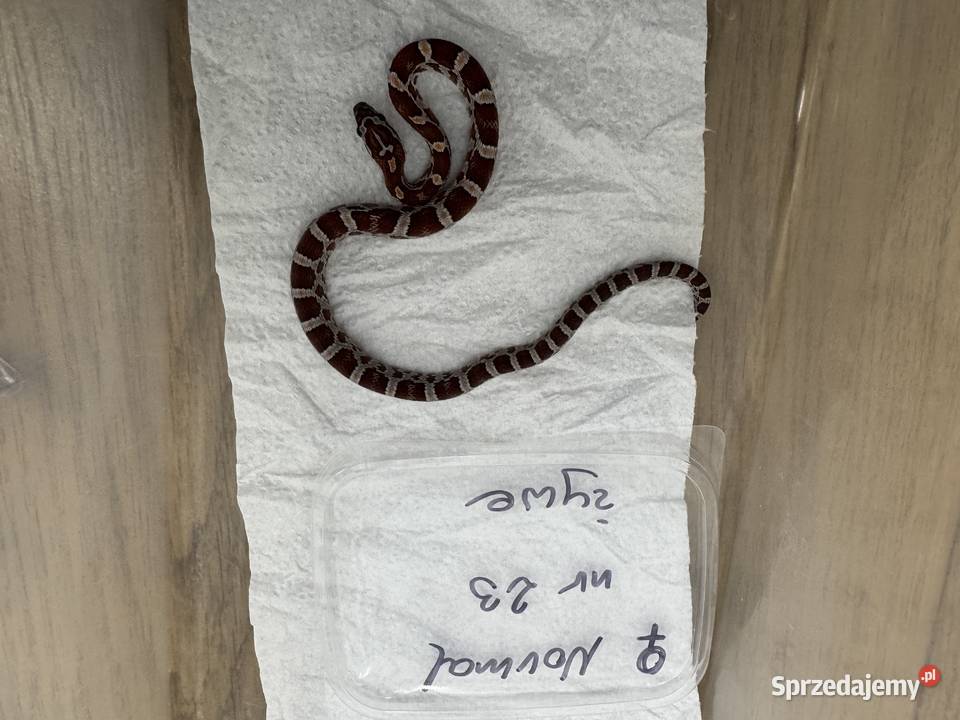 ♀ Normal
nr 23
żywe
Sprzedajemy.pl